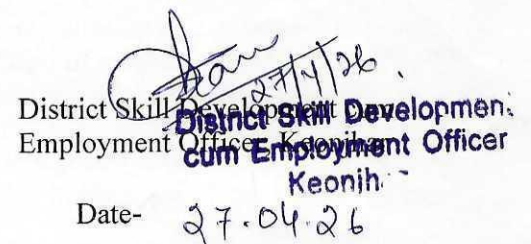 27/4/26
District Skill Development cum
Employment Officer Keonjhar
District Skill Developmen
cum Employment Officer
Keonjh
Date- 27.04.26